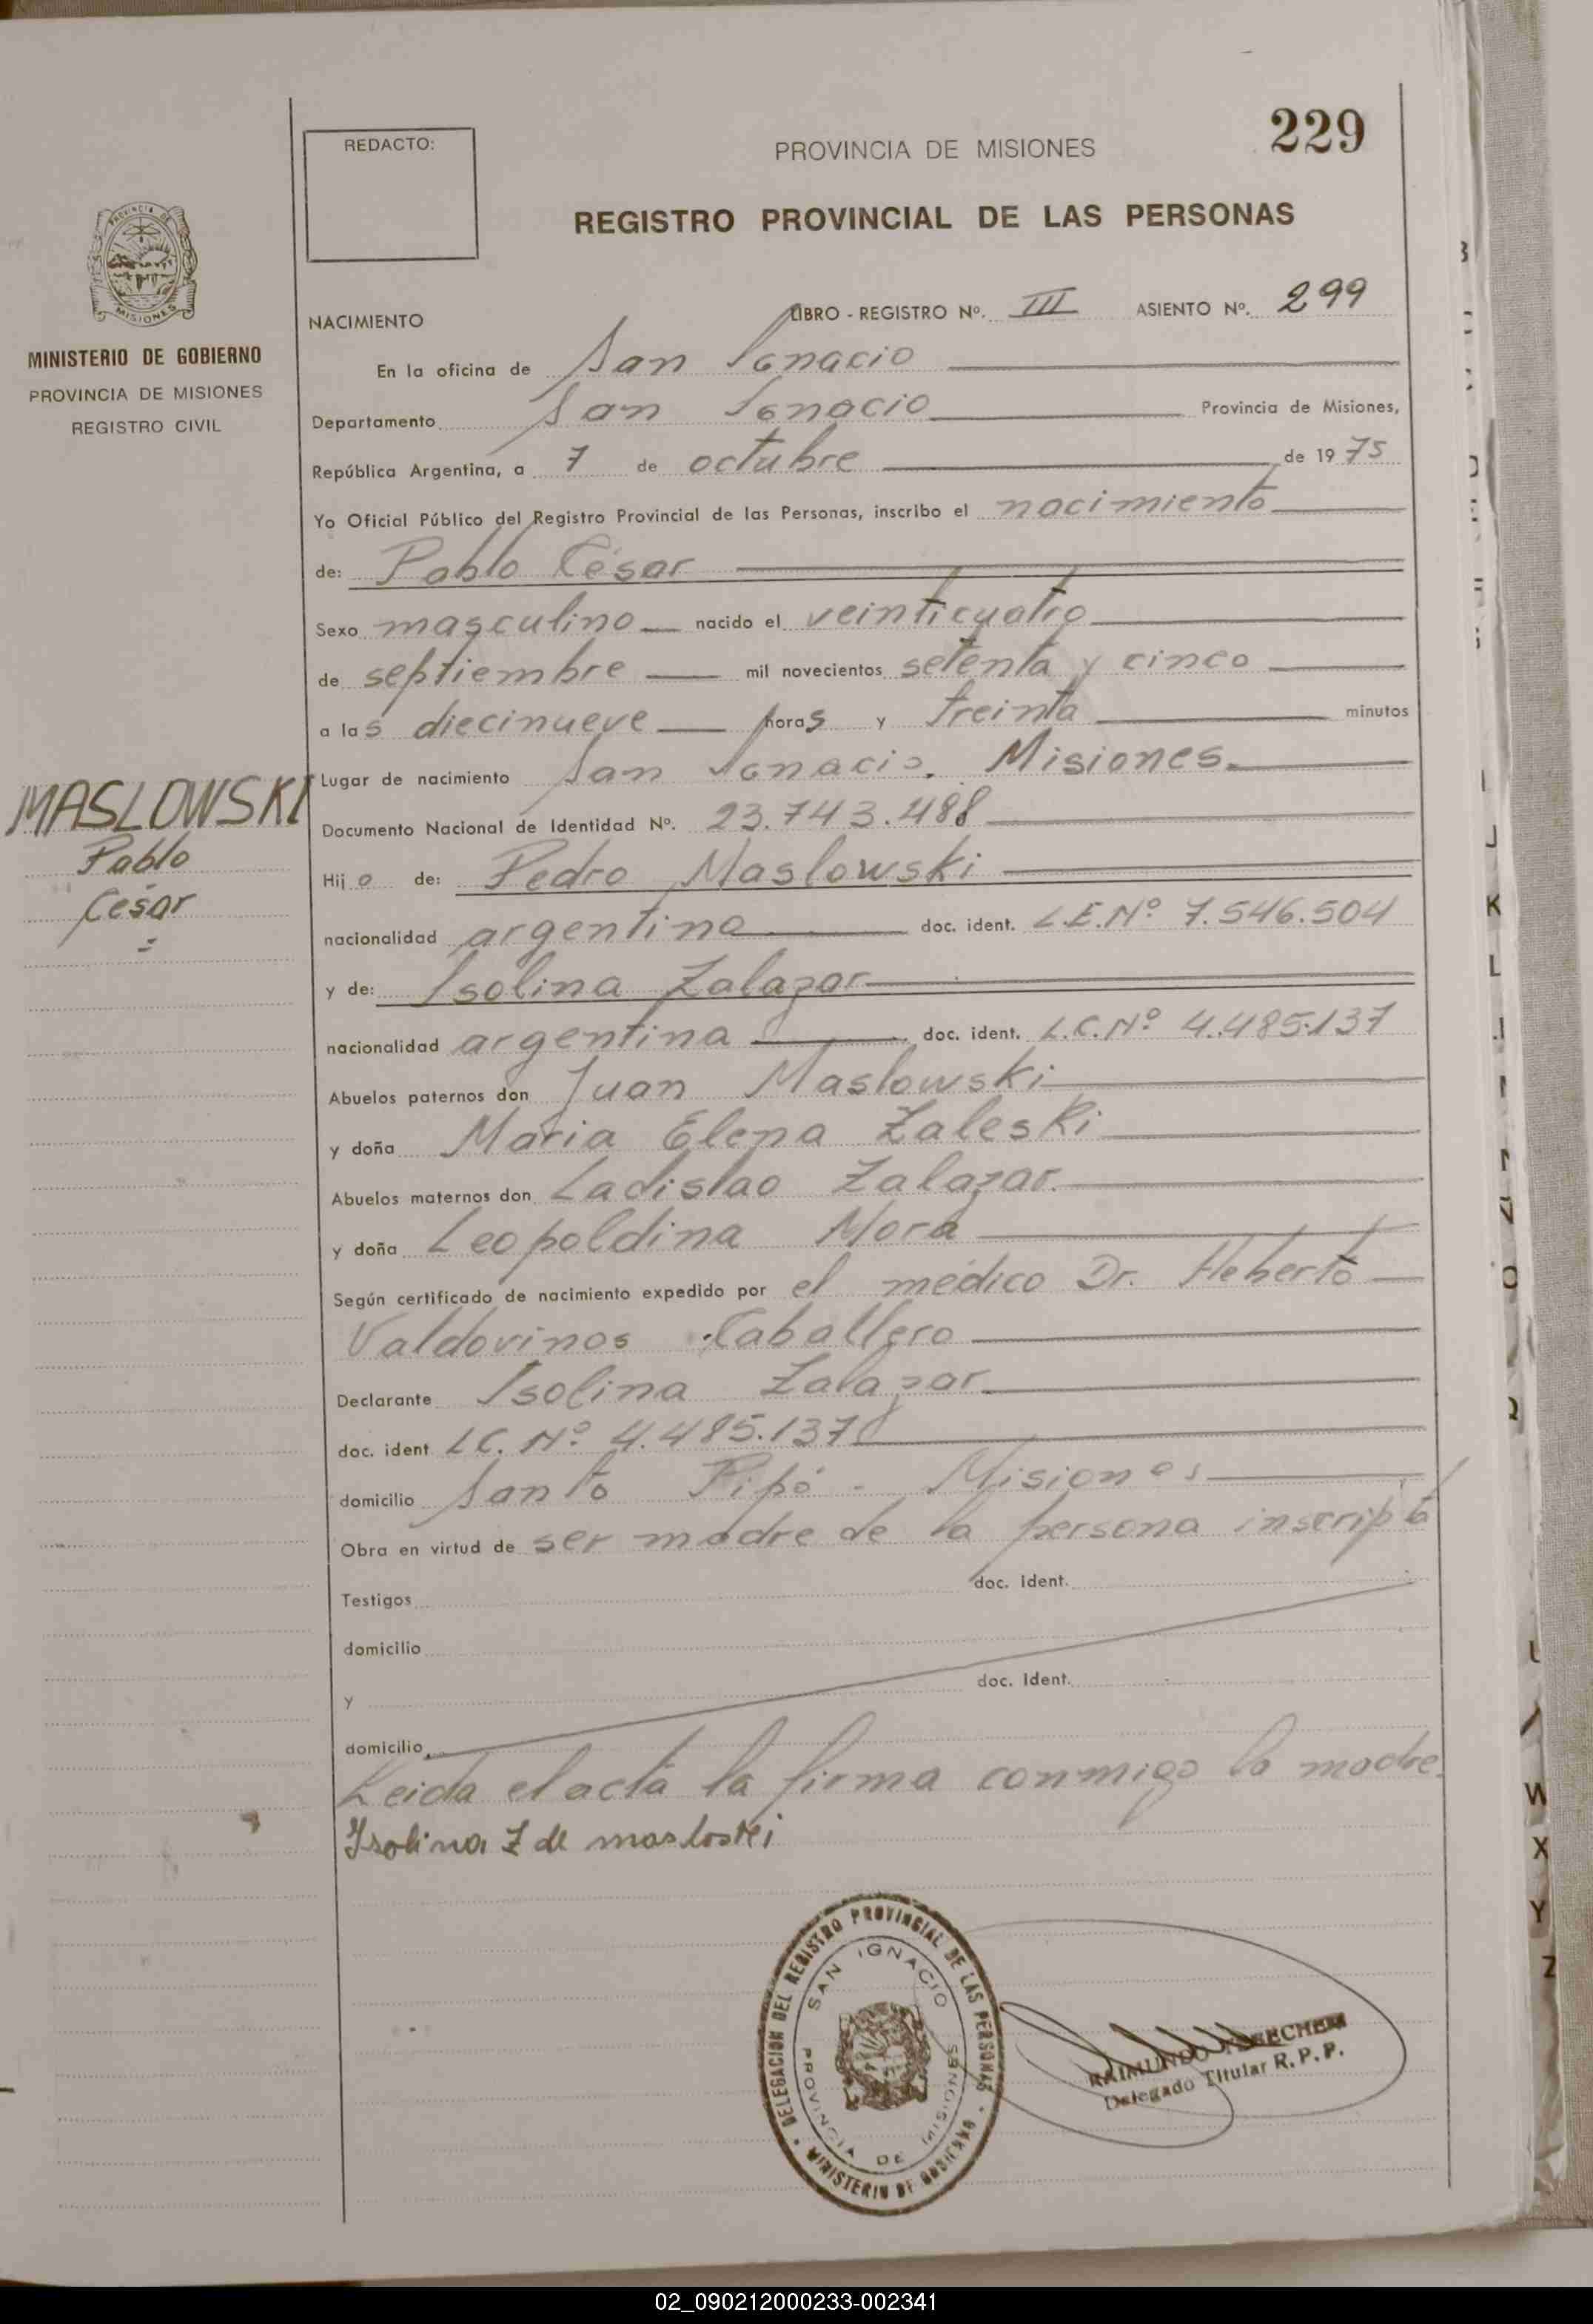 229
REDACTO:
PROVINCIA DE MISIONES
REGISTRO PROVINCIAL DE LAS PERSONAS
PROVINCIA DE MISIONES
MINISTERIO DE GOBIERNO
PROVINCIA DE MISIONES
REGISTRO CIVIL
NACIMIENTO LIBRO - REGISTRO Nº. III ASIENTO Nº. 299
En la oficina de San Ignacio
Departamento San Ignacio Provincia de Misiones,
República Argentina, a 7 de octubre de 1975
Yo Oficial Público del Registro Provincial de las Personas, inscribo el nacimiento
de: Pablo César
Sexo masculino nacido el veinticuatro
de septiembre mil novecientos setenta y cinco
a las diecinueve horas y treinta minutos
Lugar de nacimiento San Ignacio, Misiones.
MASLOWSKI
Pablo
César
Documento Nacional de Identidad Nº. 23.743.488
Hijo de: Pedro Maslowski
nacionalidad argentino doc. ident. L.E.Nº 7.546.504
y de: Isolina Zalazar
nacionalidad argentina doc. ident. L.C.Nº 4.485.137
Abuelos paternos don Juan Maslowski
y doña Maria Elena Zaleski
Abuelos maternos don Ladislao Zalazar.
y doña Leopoldina Mora
Según certificado de nacimiento expedido por el médico Dr. Heberto
Valdovinos Caballero
Declarante Isolina Zalazar.
doc. ident L.C. Nº 4.485.137
domicilio Santo Pipó - Misiones
Obra en virtud de ser madre de la persona inscripta
Testigos doc. ident.
domicilio
y doc. ident.
domicilio
Leida el acta la firma conmigo la madre.
Isolina Z de masloski
DELEGACION DEL REGISTRO PROVINCIAL DE LAS PERSONAS
SAN IGNACIO
PROVINCIA DE MISIONES
MINISTERIO DE GOBIERNO
RAIMUNDO
Delegado Titular R.P.P.
J
K
L
N
O
Q
W
X
Y
Z
02_090212000233-002341